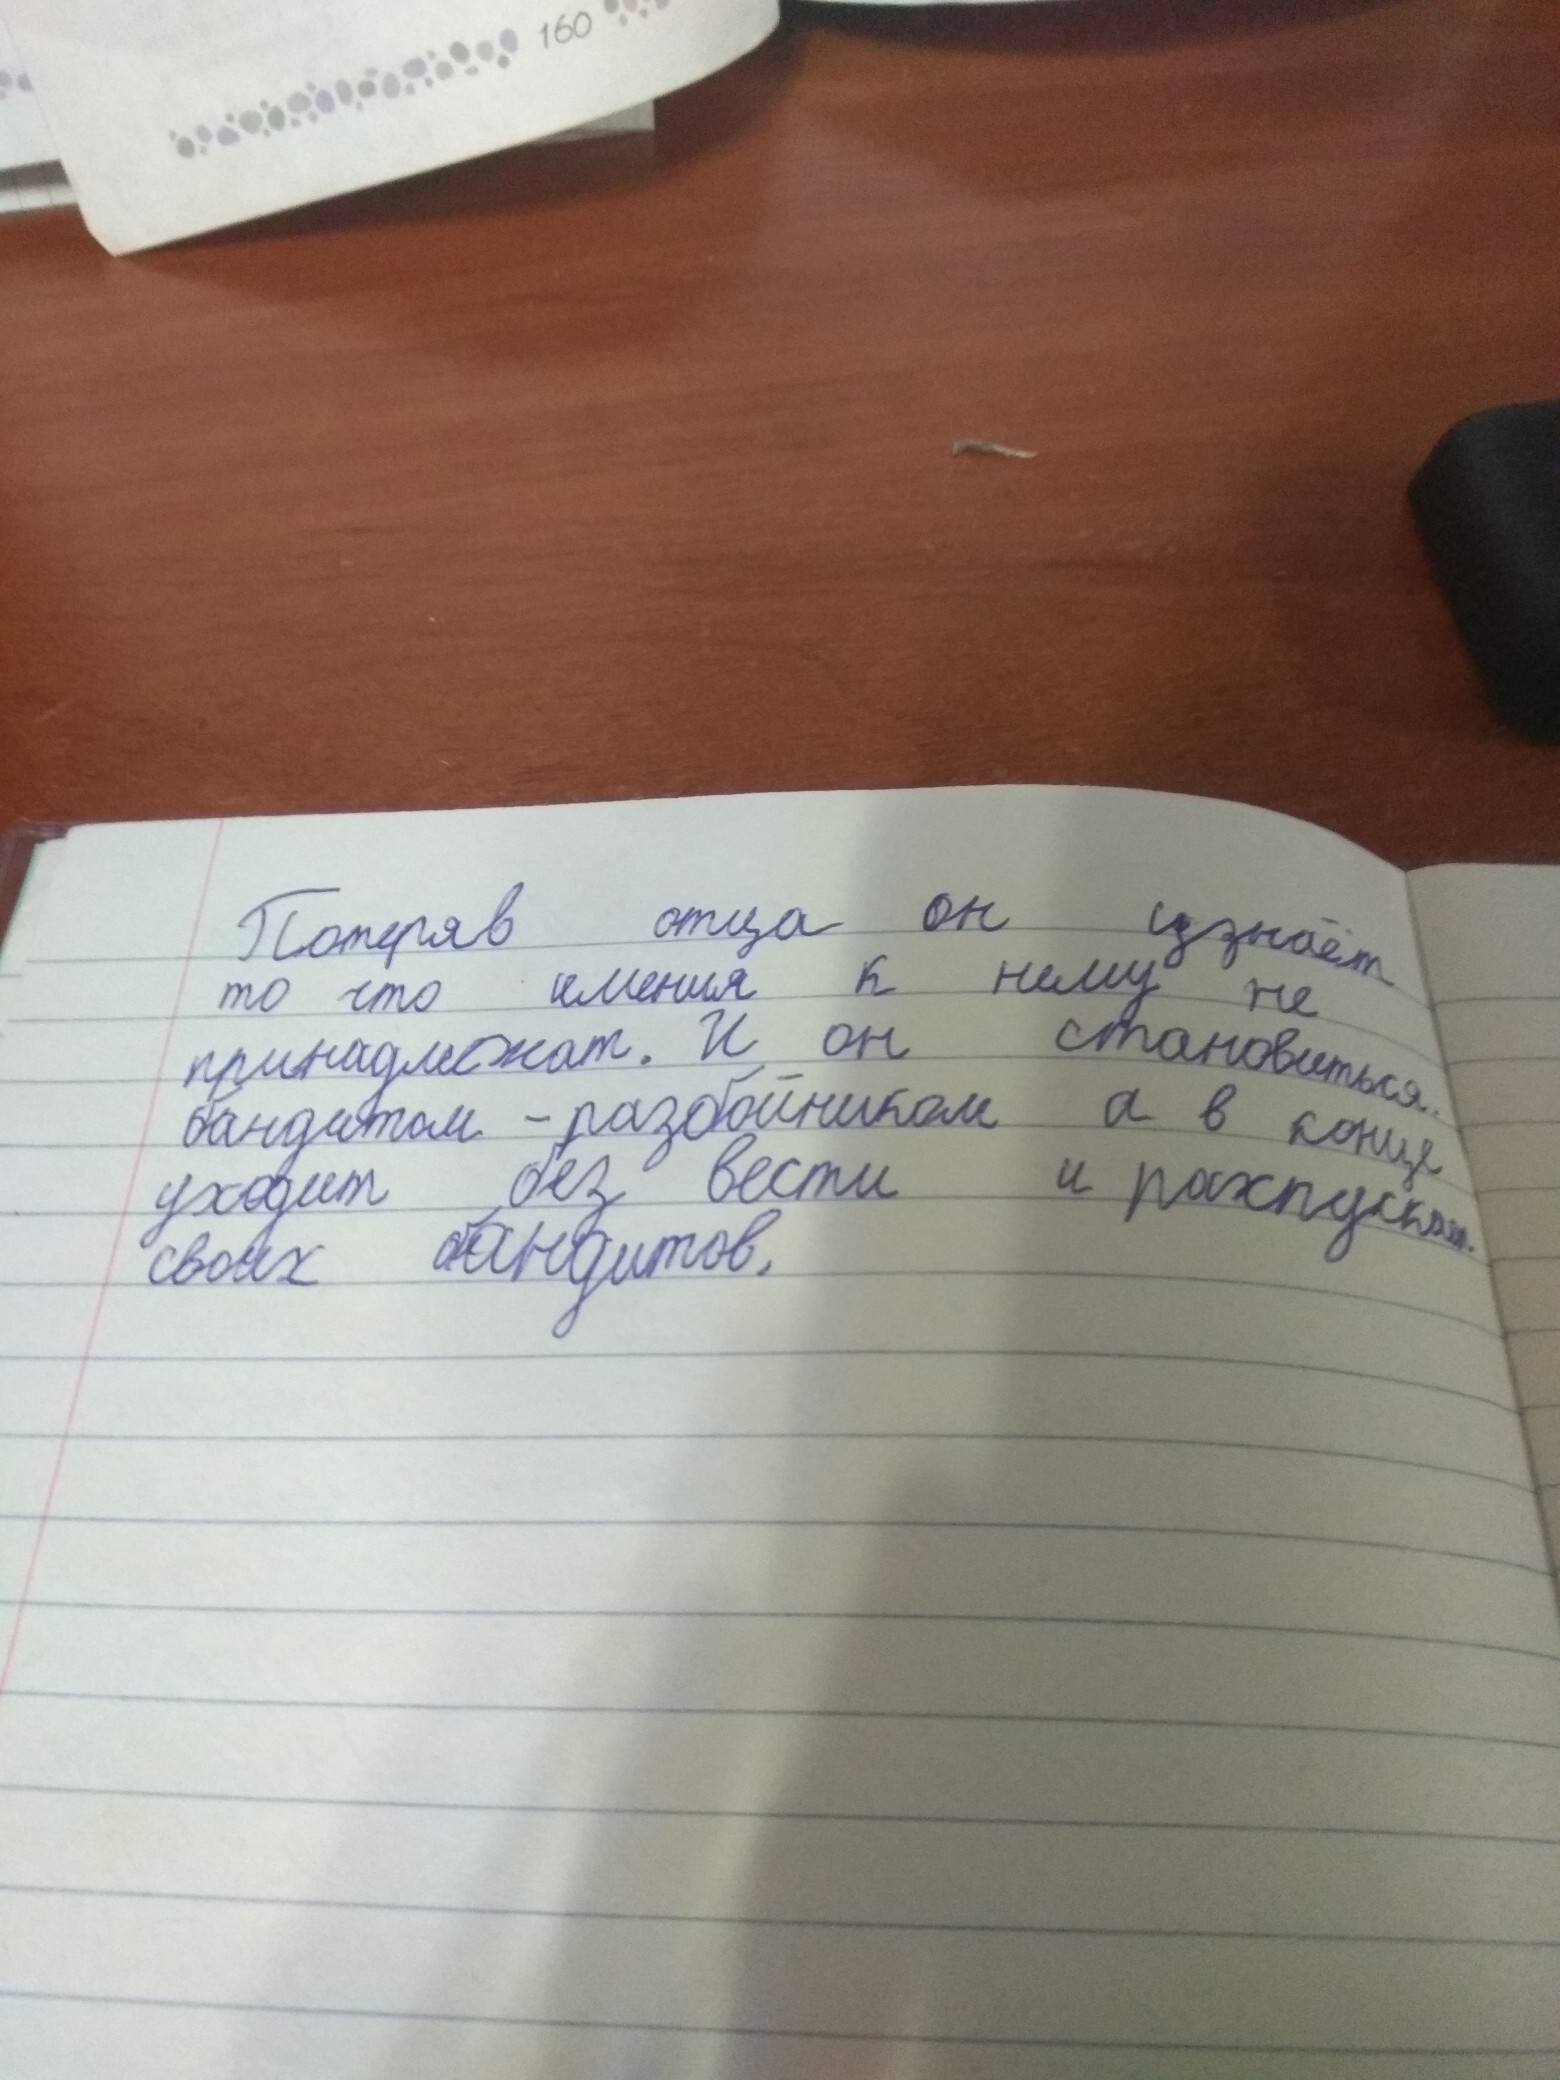 160
Потеряв отца он узнаёт
то что имения к нему не
принадлежат. И он становиться
бандитом - разбойником а в конце
уходит без вести и распускает
своих бандитов.